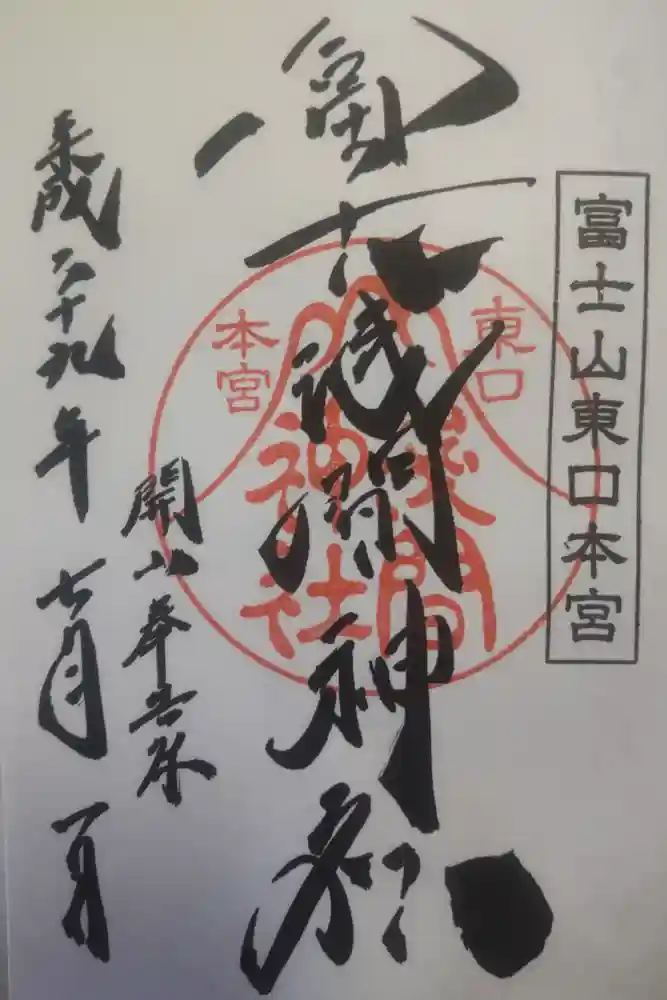 富士山東口本宮
冨士浅間神
東口
本宮
淺間
神社
開山奉告祭
平成二十九年七月一日